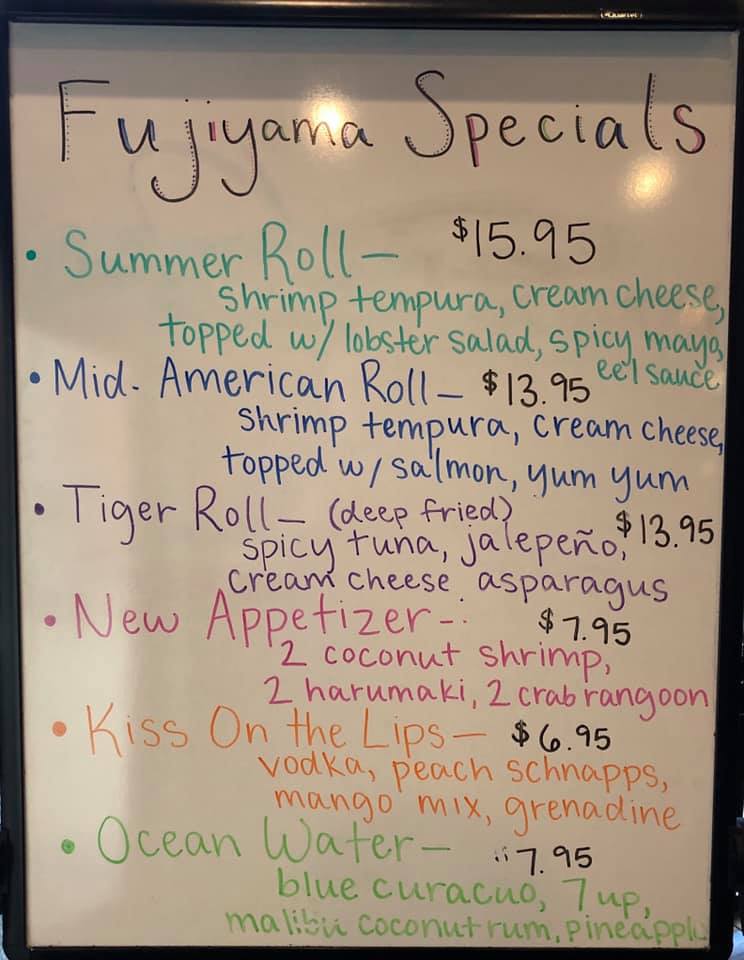 Fujiyama Specials
• Summer Roll – $15.95
shrimp tempura, cream cheese,
topped w/ lobster salad, spicy mayo,
eel sauce
• Mid. American Roll – $13.95
shrimp tempura, cream cheese,
topped w/ salmon, yum yum
• Tiger Roll – (deep fried) $13.95
spicy tuna, jalepeño,
cream cheese, asparagus
• New Appetizer – $7.95
2 coconut shrimp,
2 harumaki, 2 crab rangoon
• Kiss On the Lips – $6.95
vodka, peach schnapps,
mango mix, grenadine
• Ocean Water – 7.95
blue curacuo, 7 up,
malibu coconut rum, pineapple